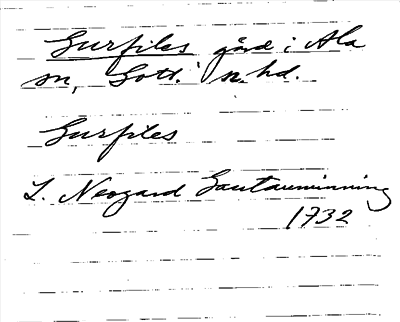 Gurfiles gård i Ala
sn, Gotl. n. hd.
Gurfiles
L. Neogard Gautauminning
1732